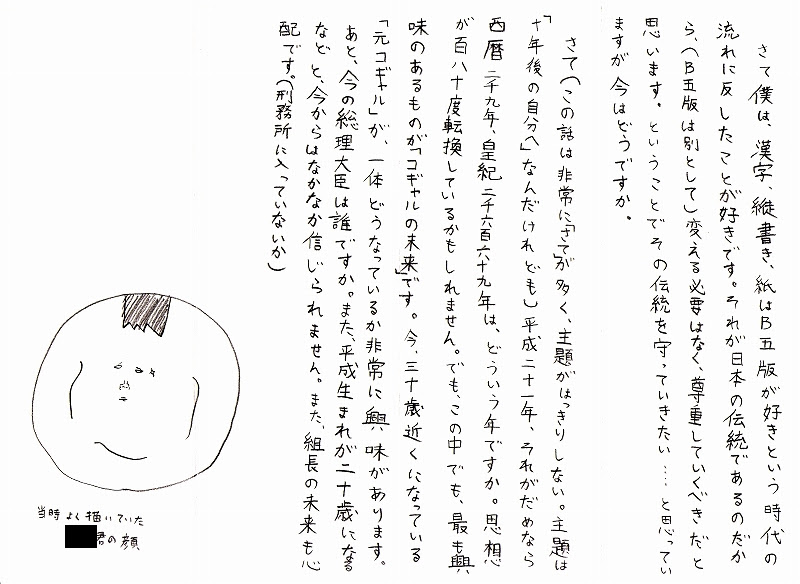 さて僕は、漢字、縦書き、紙はB五版が好きという時代の
流れに反したことが好きです。それが日本の伝統であるのだか
ら、(B五版は別として)変える必要はなく、尊重していくべきだと
思います。ということでその伝統を守っていきたい……と思ってい
ますが今はどうですか。
さて(この話は非常に「さて」が多く、主題がはっきりしない。主題は
「十年後の自分へ」なんだけれども)平成二十一年、それがだめなら
西暦二千九年、皇紀二千六百六十九年は、どういう年ですか。思想
が百八十度転換しているかもしれません。でも、この中でも、最も興
味のあるものが「コギャルの未来」です。今、三十歳近くになっている
「元コギャル」が、一体どうなっているか非常に興味があります。
あと、今の総理大臣は誰ですか。また、平成生まれが二十歳になる
などと、今からはなかなか信じられません。また、組長の未来も心
配です。(刑務所に入っていないか)
当時よく描いていた
君の顔